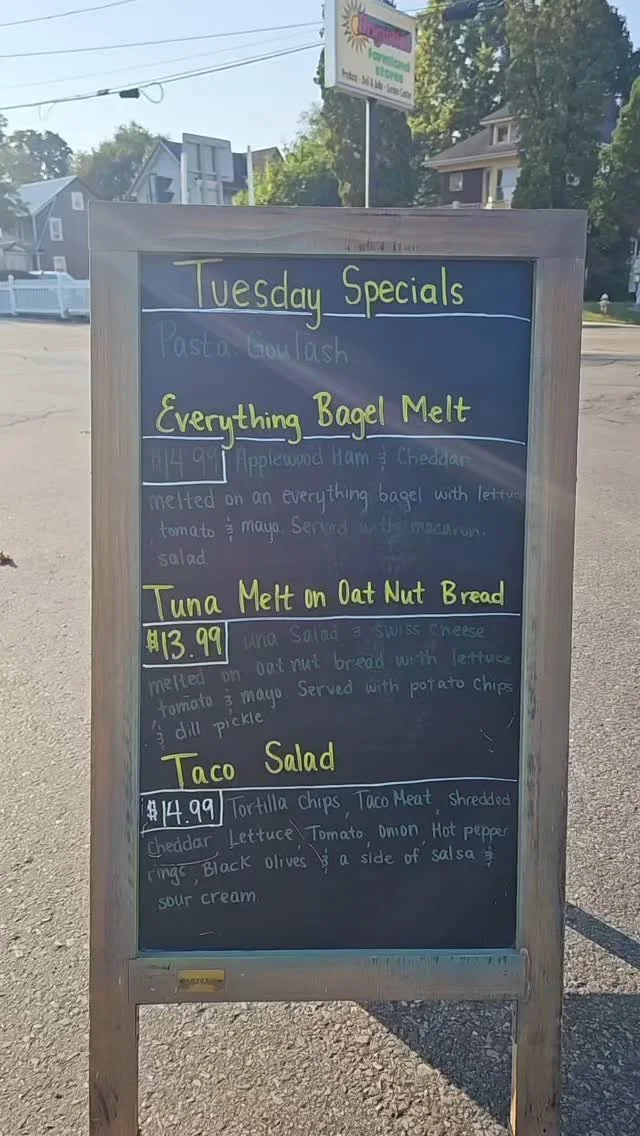 Original
farmland
stores
Produce - Deli & Subs - Garden Center
Tuesday Specials
Pasta Goulash
Everything Bagel Melt
$14.99 Applewood Ham & Cheddar
melted on an everything bagel with lettuce
tomato & mayo. Served with macaroni
salad.
Tuna Melt on Oat Nut Bread
$13.99 Tuna Salad & Swiss cheese
melted on oat nut bread with lettuce
tomato & mayo. Served with potato chips
& dill pickle
Taco Salad
$14.99 Tortilla chips, Taco Meat, shredded
cheddar, Lettuce, Tomato, onion, Hot pepper
rings, Black olives & a side of salsa &
sour cream